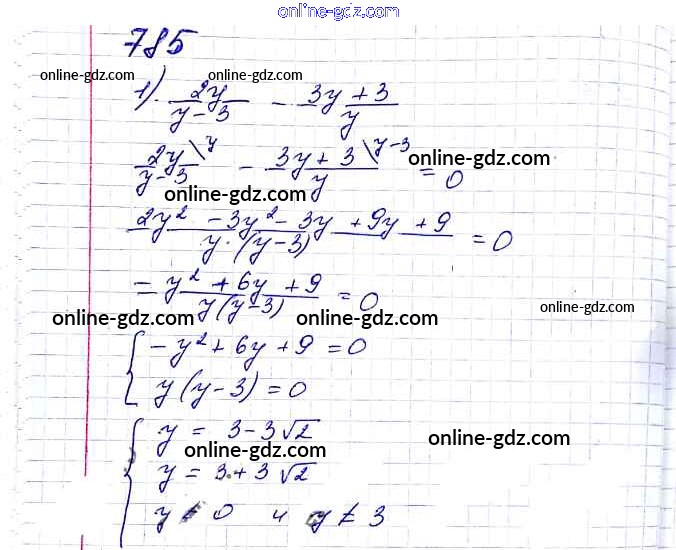 online-gdz.com
785
online-gdz.com online-gdz.com
1). 2y/(y-3) - (3y+3)/y
2y\y/(y-3) - (3y+3\y-3)/y = 0 online-gdz.com
online-gdz.com
(2y² - 3y² - 3y + 9y + 9)/(y·(y-3)) = 0
= (y² + 6y + 9)/(y(y-3)) = 0
online-gdz.com
online-gdz.com online-gdz.com
{ -y² + 6y + 9 = 0
y(y-3) = 0
{ y = 3 - 3√2
online-gdz.com
y = 3 + 3√2
online-gdz.com
y ≠ 0 и y ≠ 3